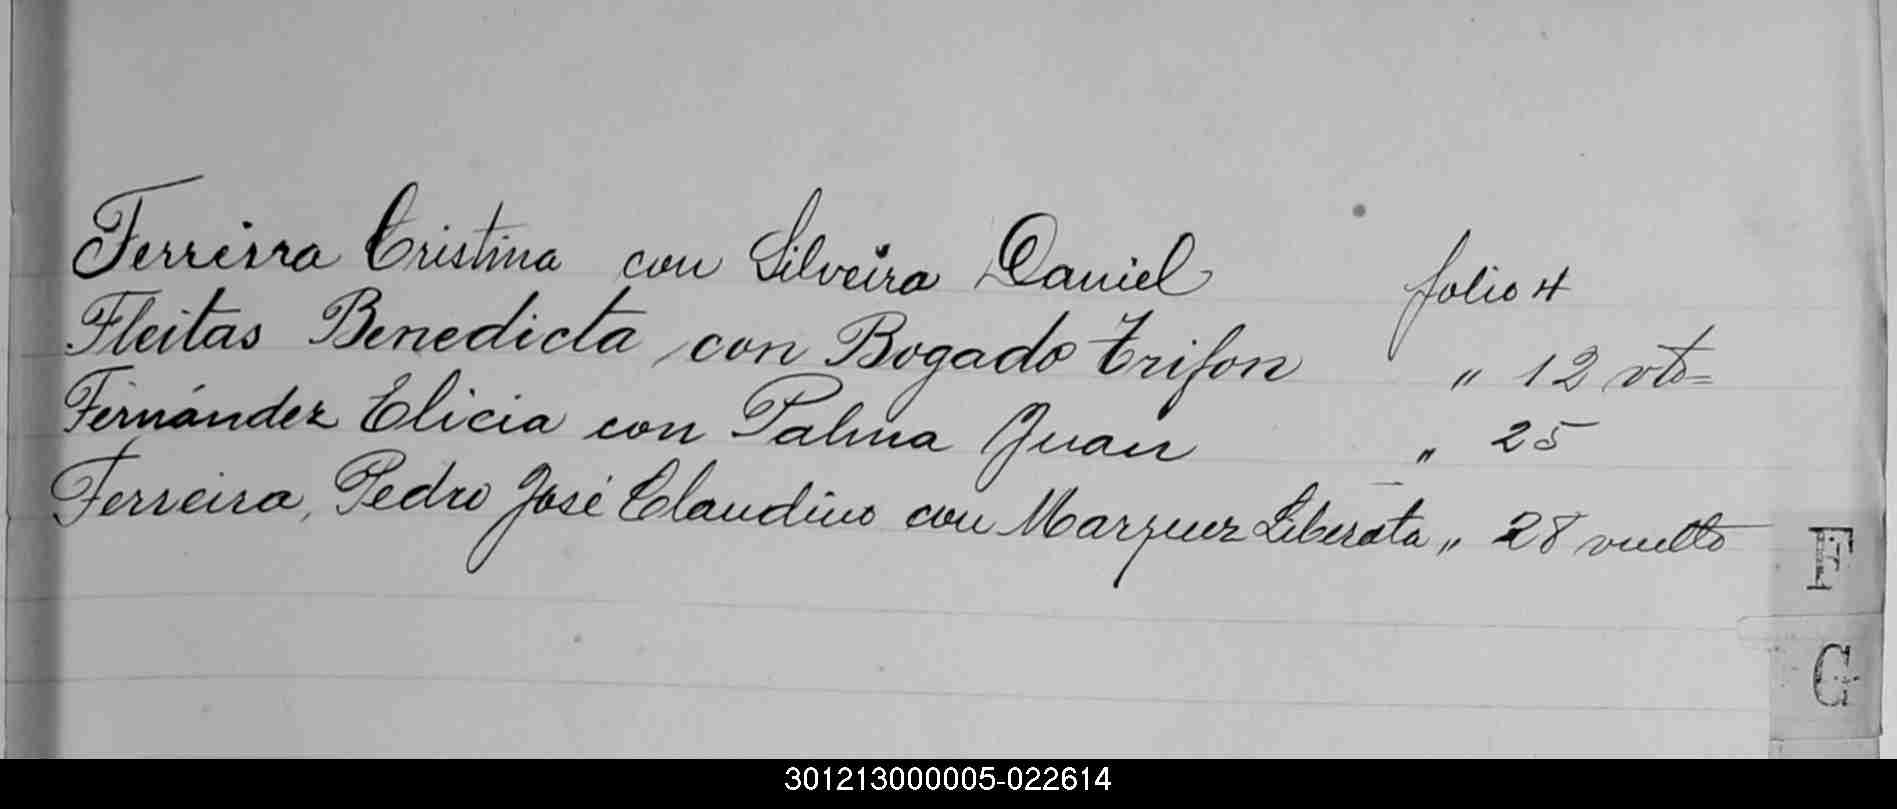 Ferreira Cristina con Silveira Daniel folio 4
Fleitas Benedicta con Bogado Trifon " 12 vto=
Fernández Elicia con Palma Juan " 25
Ferreira, Pedro José Claudino con Marquez Liberata " 28 vuelto
F
G
301213000005-022614